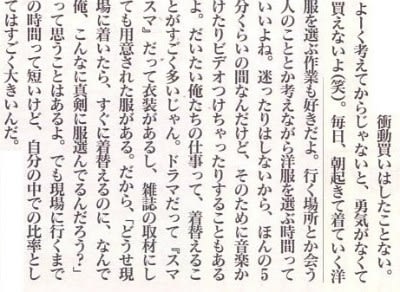 衝動買いはしたことない。
よーく考えてからじゃないと、勇気がなくて
買えないよ(笑)。毎日、朝起きて着ていく洋
服を選ぶ作業も好きだよ。行く場所とか会う
人のこととか考えながら洋服を選ぶ時間って
いいよね。迷ったりはしないから、ほんの5
分くらいの間なんだけど、そのために音楽か
けたりビデオつけちゃったりすることもある
よ。だいたい俺たちの仕事って、着替えるこ
とがすごく多いじゃん。ドラマだって『スマ
スマ』だって衣装があるし、雑誌の取材にし
ても用意された服がある。だから、「どうせ現
場に着いたら、すぐに着替えるのに、なんで
俺、こんなに真剣に服選んでるんだろう?」
って思うことはあるよ。でも現場に行くまで
の時間って短いけど、自分の中での比率とし
てはすごく大きいんだ。